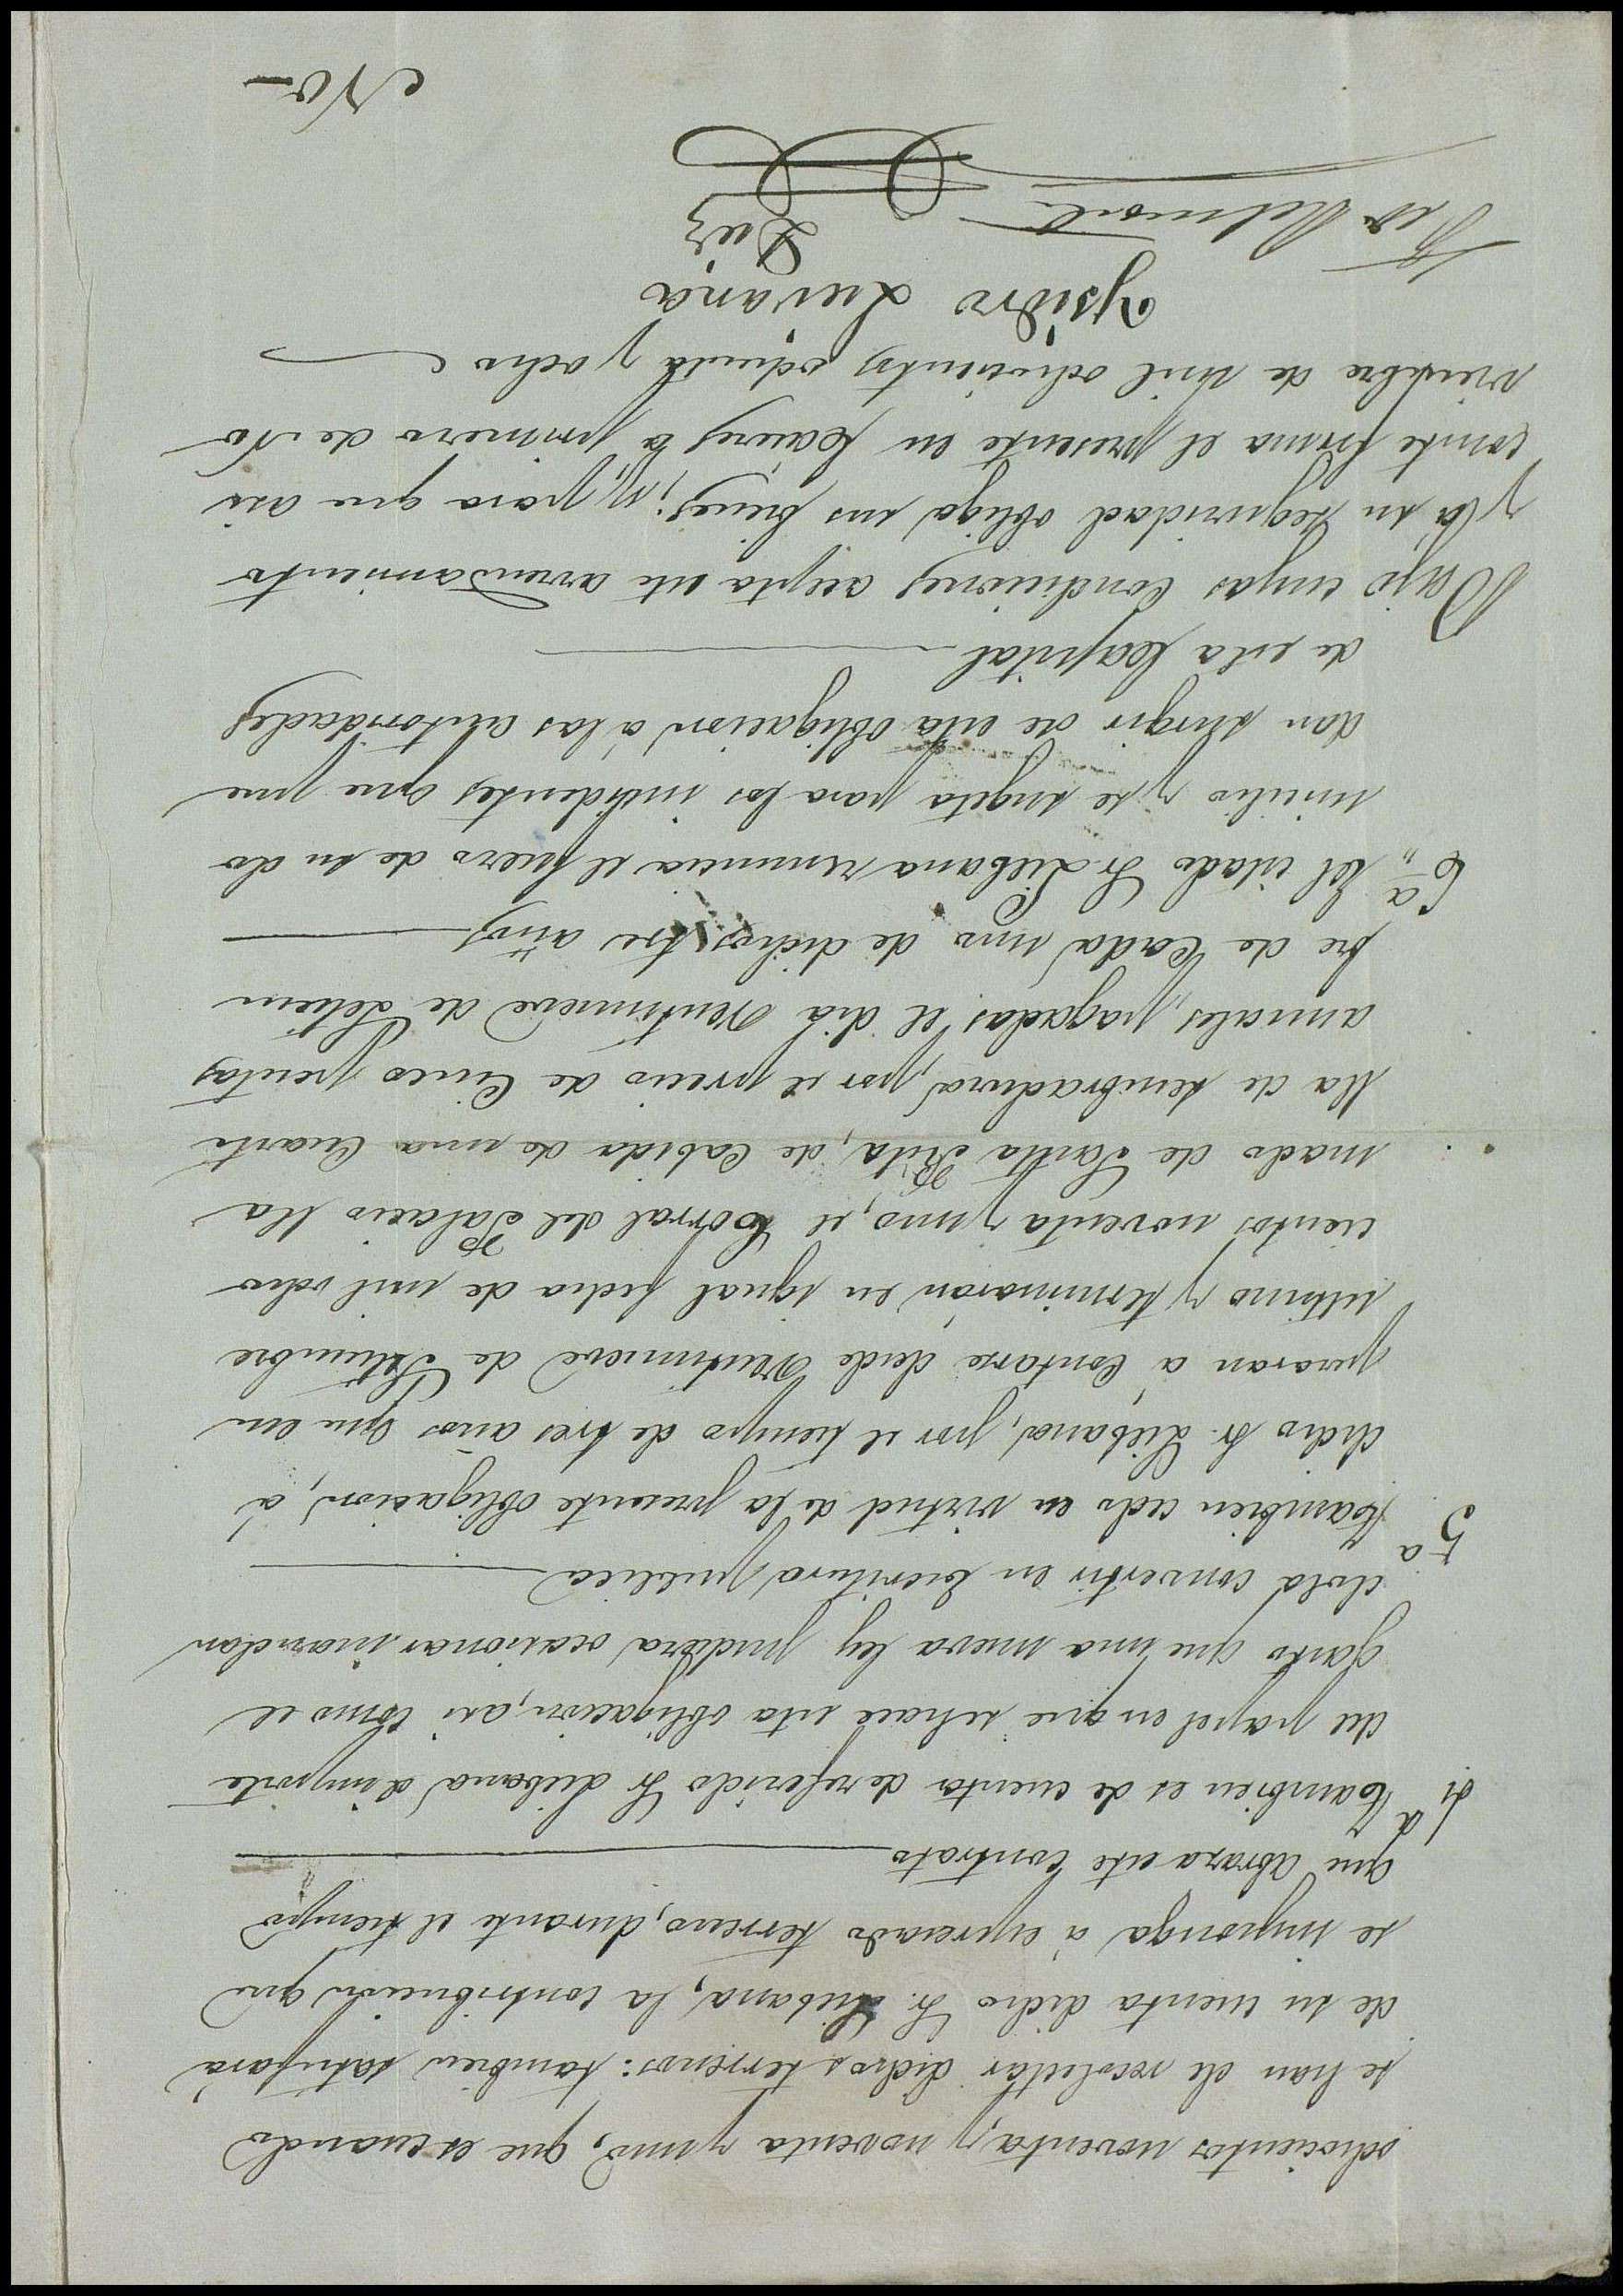 ochocientos noventa, y noventa y uno, que es cuando
se han de recolectar dichos terrenos: tambien satisfará
de su cuenta dicho Sr. Liebana, la contribucion que
se imponga á espresado terreno, durante el tiempo
que abraza este Contrato
4ª Tambien es de cuenta de referido Sr Liebana el importe
del papel en que se hace esta obligacion, asi como el
gasto que una nueva ley pudiera ocasionar mandan
dola convertir en Escritura publica
5ª Tambien cedo en virtud de la presente obligacion, á
dicho Sr. Liebana, por el tiempo de tres años que em
pezaran á Contarse desde Veintinueve de Setiembre
ultimo y terminarán en igual fecha de mil ocho
cientos noventa y uno, el Corral del Palacio lla
mado de Santa Rita, de Cabida de una Cuarti
lla de sembradura, por el precio de Cinco pesetas
anuales, pagadas el dia Veintinueve de Setiem
bre de Cada uno de dichos tres años
6ª El citado Sr Liebana renuncia el fuero de su do
micilio y se sugeta para los insidentes que pue
dan surgir de esta obligacion á las Autoridades
de esta Capital
Bajo cuyas Condiciones acepta este arrendamiento
y á su seguridad obliga sus bienes; y para que asi
conste firma el presente en Caceres á primero de No
viembre de mil ochocientos ochenta y ocho
Ysidro Lievana
Diez
No